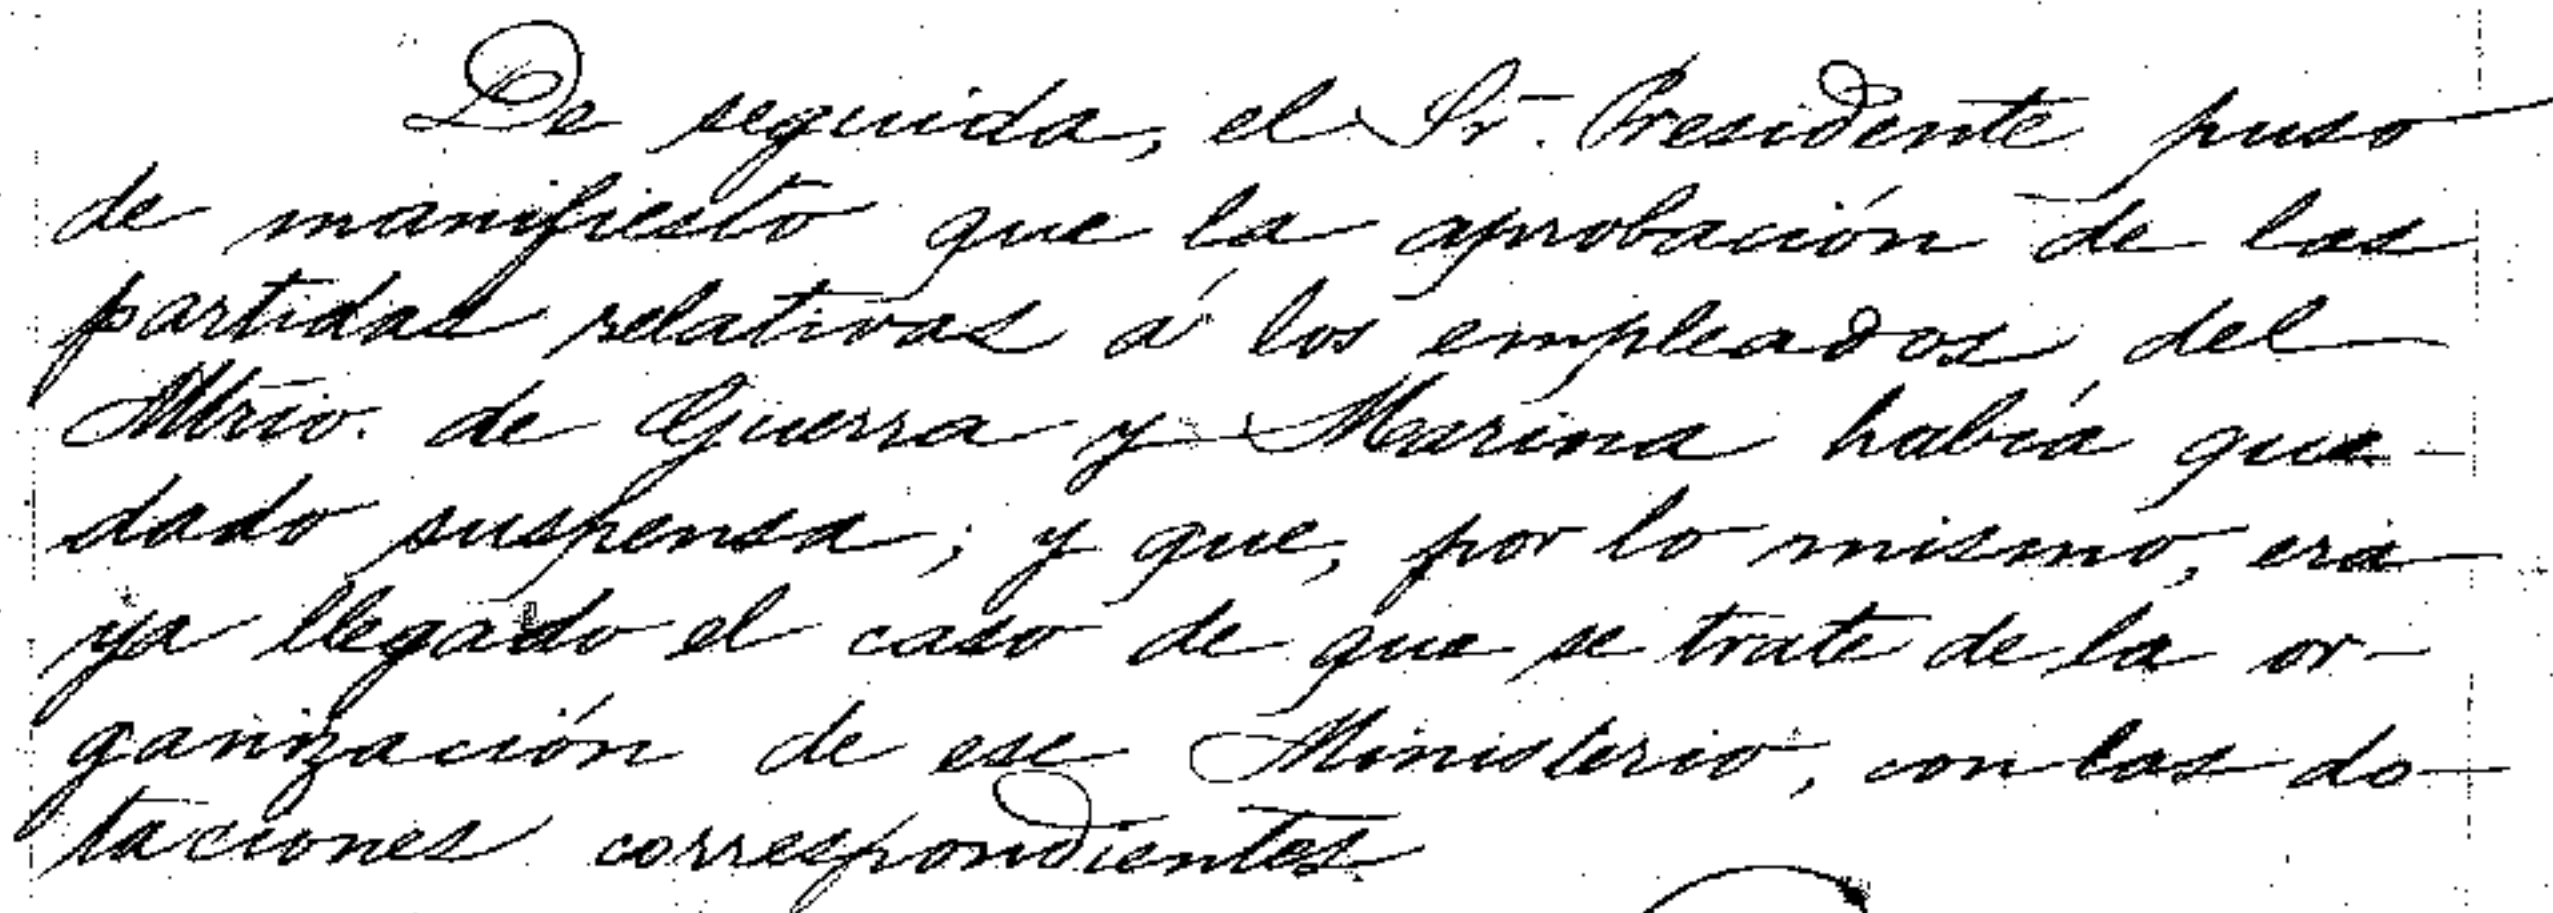 De seguida, el Sr. Presidente puso
de manifiesto que la aprobación de las
partidas relativas á los empleados del
Mtrio. de Guerra y Marina había que-
dado suspensa; y que, por lo mismo, era
ya llegado el caso de que se trate de la or-
ganización de ese Ministerio, con las do-
taciones correspondientes